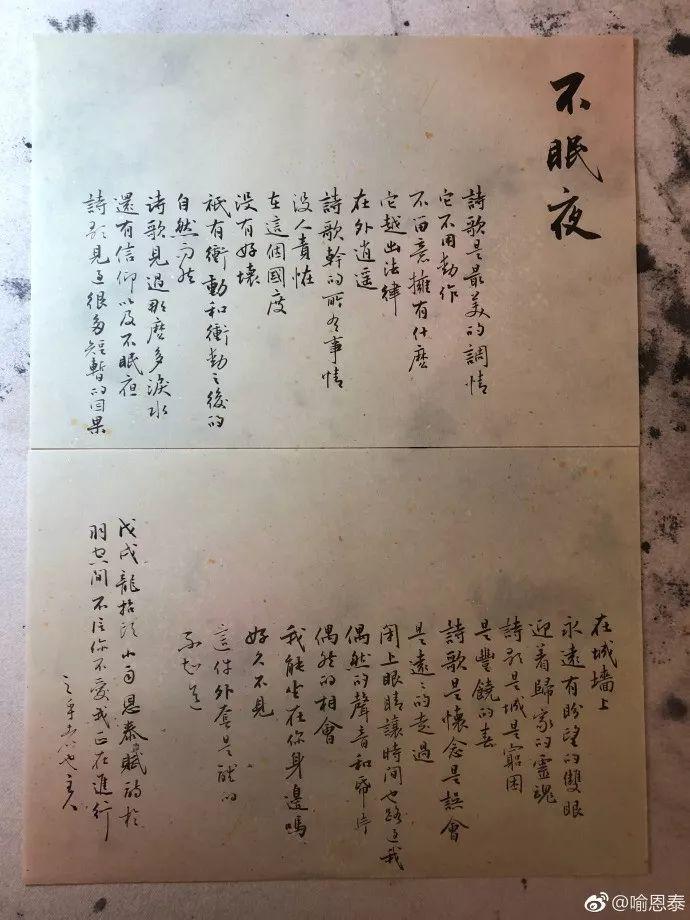 不眠夜
詩歌是最美的調情
它不用動作
不百意擁有什麽
它越出法律
在外逍遥
詩歌幹的所有事情
没人責怪
在這個國度
没有好壞
祇有衝動和衝動之後的
自然而然
诗歌見過那麽多淚水
還有信仰以及不眠夜
詩歌見過很多短暫的因果
在城墻上
永遠有盼望的雙眼
迎着歸家的靈魂
詩歌是城是窮困
是豐饒的春
詩歌是懷念是誤會
是遠遠的走過
闭上眼睛讓時間也路過我
偶然的聲音和
偶然的相會
我能坐在你身邊嗎
好久不見
這件外套是
不知道
戊戌龍抬頭小雨恩泰賦詩於
羽
间不信你不愛我正在進行
主人
@喻恩泰